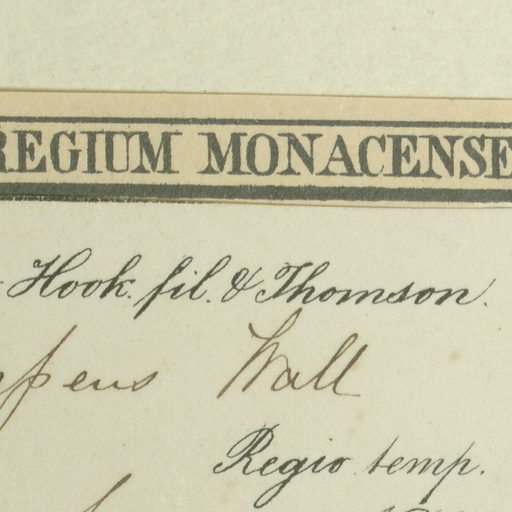 REGIUM MONACENSE
Hook. fil. & Thomson.
Wall
Regio temp.